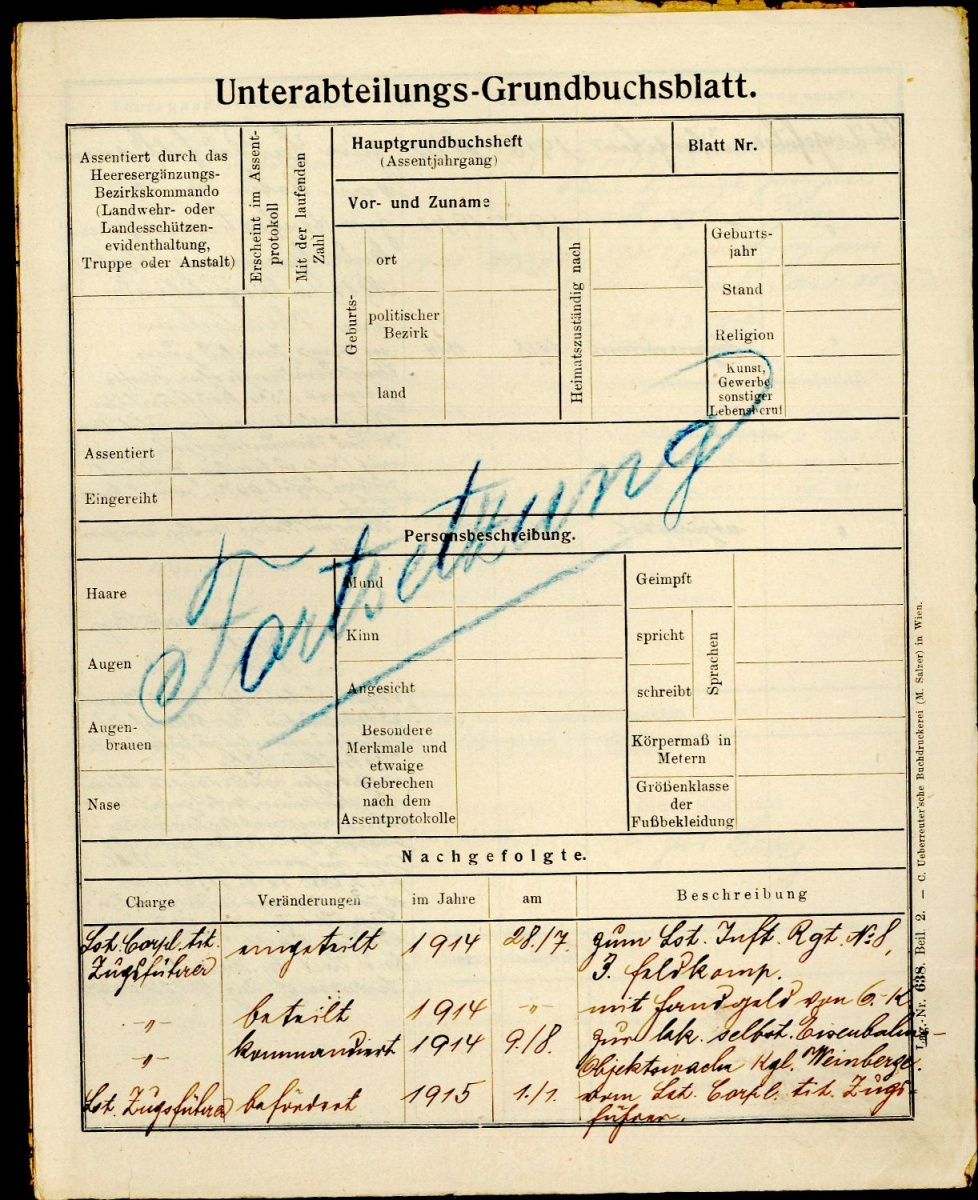 Unterabteilungs-Grundbuchsblatt.
Assentiert durch das
Heeresergänzungs-
Bezirkskommando
(Landwehr- oder
Landesschützen-
evidenthaltung,
Truppe oder Anstalt)
Erscheint im Assent-
protokoll
Mit der laufenden
Zahl
Hauptgrundbuchsheft
(Assentjahrgang)
Blatt Nr.
Vor- und Zuname
Geburts-
ort
politischer
Bezirk
land
Heimatszuständig nach
Geburts-
jahr
Stand
Religion
Kunst,
Gewerbe,
sonstiger
Lebensberuf
Assentiert
Eingereiht
Fortsetzung
Personsbeschreibung.
Haare
Augen
Augen-
brauen
Nase
Mund
Kinn
Angesicht
Besondere
Merkmale und
etwaige
Gebrechen
nach dem
Assentprotokolle
Geimpft
spricht
schreibt
Sprachen
Körpermaß in
Metern
Größenklasse
der
Fußbekleidung
Nachgefolgte.
Charge Veränderungen im Jahre am Beschreibung
Lst. Corpl. tit. eingeteilt 1914 28./7. zum Lst. Inft. Rgt. No 8,
Zugsführer 3. Feldkomp.
-"- beteilt 1914 -"- mit Handgeld von 6.- K
-"- kommandiert 1914 9./8. zur lək. selbst. Eisenbahn-
Objektswache Kgl. Weinberge.
Lst. Zugsführer befördert 1915 1./1. vom Lst. Corpl. tit. Zugs-
führer.
Lag.-Nr. 638. Beil. 2. — C. Ueberreuter'sche Buchdruckerei (M. Salzer) in Wien.